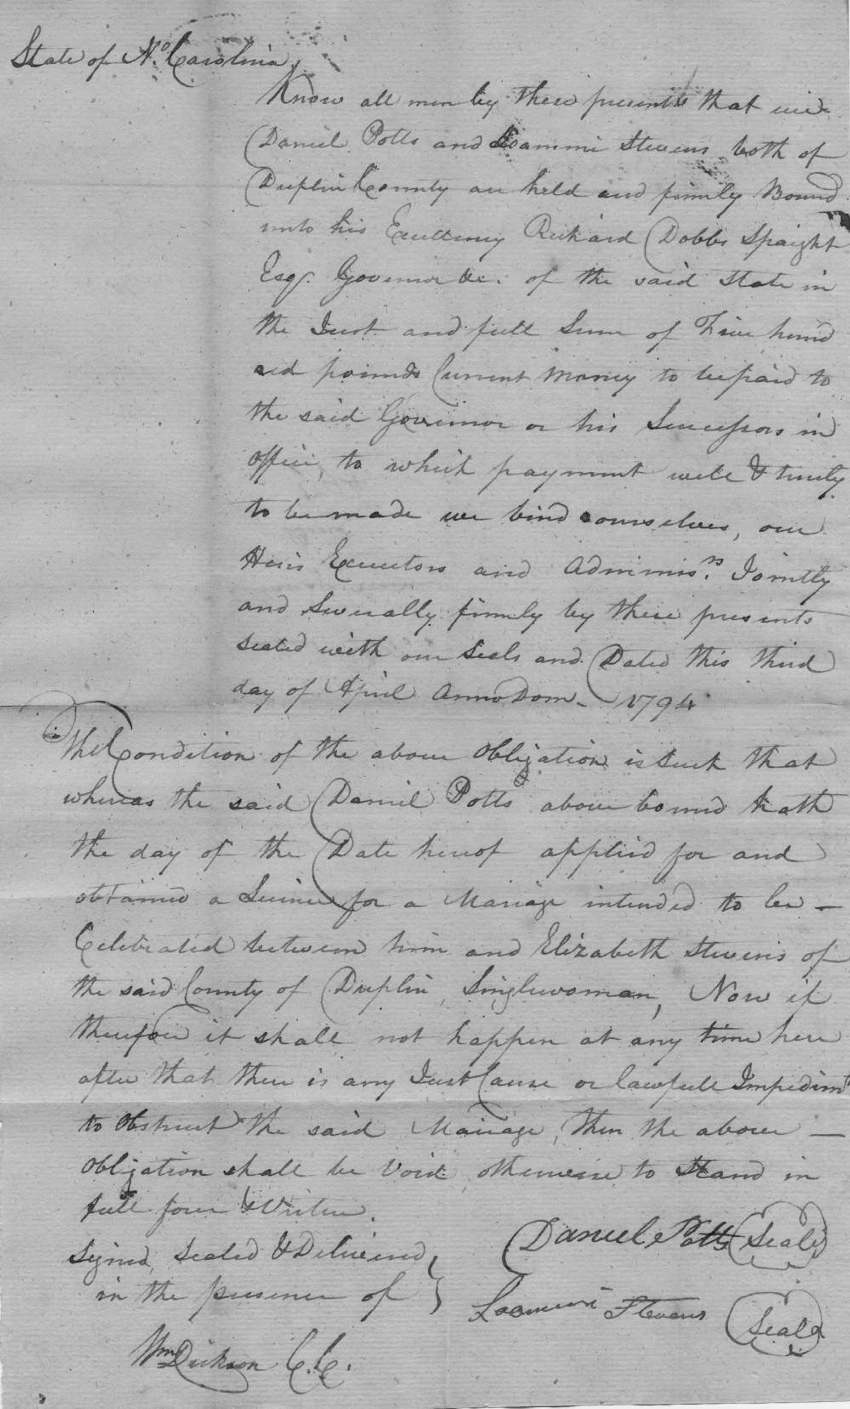 State of No. Carolina,
Know all men by these presents that we
Daniel Potts and Loammi Stevens both of
Duplin County are held and firmly Bound
unto his Excellency Richard Dobbs Spaight
Esqr. Governor &c. of the said State in
the Just and full Sum of Five hund
red pounds Current money to be paid to
the said Governor or his Successors in
office, to which payment well & truly
to be made we bind ourselves, our
Heirs Executors and Adminisrs. Jointly
and Severally firmly by these presents
Sealed with our Seals and Dated this third
day of April Anno Dom. 1794
The Condition of the above Obligation is Such that
whereas the said Daniel Potts above bound hath
the day of the Date hereof applied for and
obtained a Licince for a Mariage intended to be –
Celebrated between him and Elizabeth Stevens of
the said County of Duplin, Singlewoman, Now if
therefore it shall not happen at any time here
after that there is any Just Cause or lawfull Impedimt
to Obstruct the said Mariage, then the above –
Obligation shall be Void otherwise to Stand in
full force & Virtue.
Signed, Sealed & Delivered
in the presence of
Daniel Potts (Seal)
Loammi Stevens (Seal)
Wm Dickson C.C.